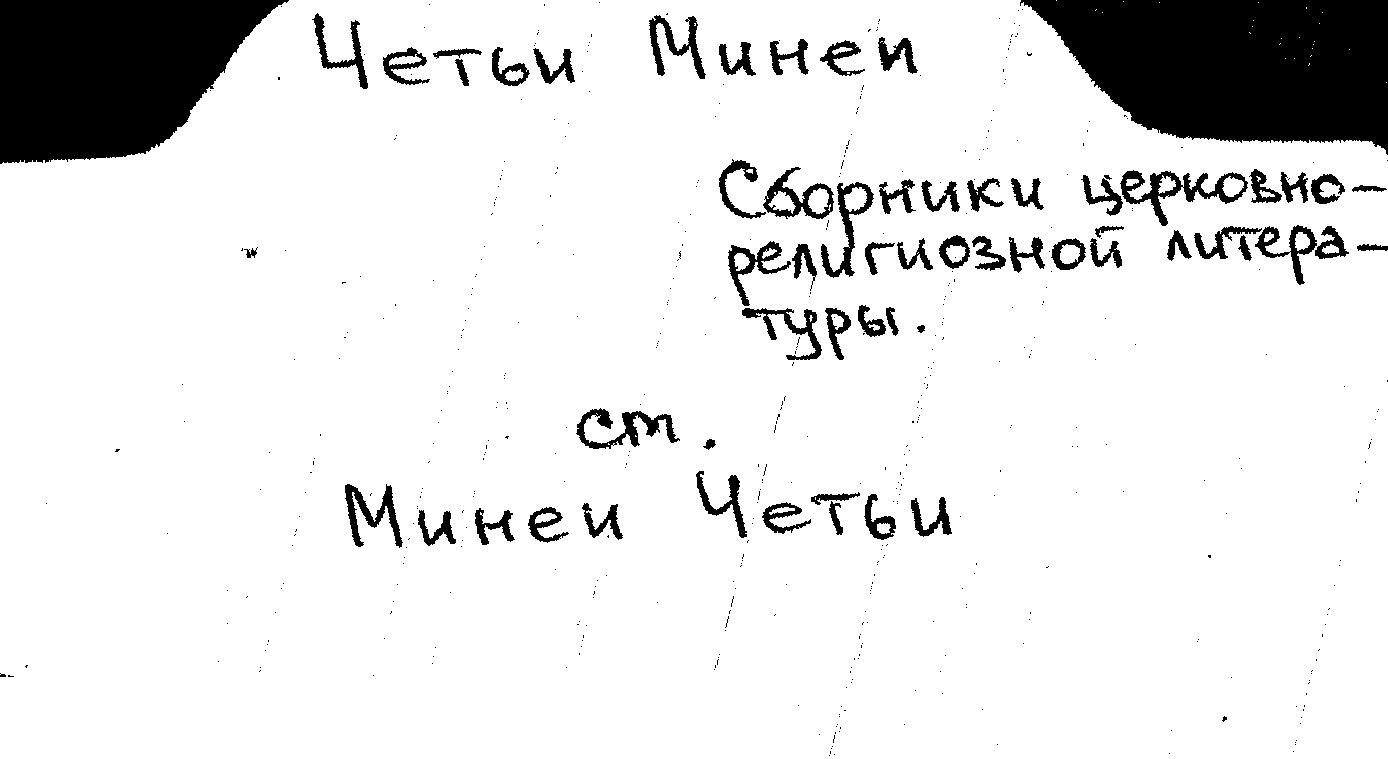 Четьи Минеи
Сборники церковно-
религиозной литера-
туры.
ст.
Минеи Четьи